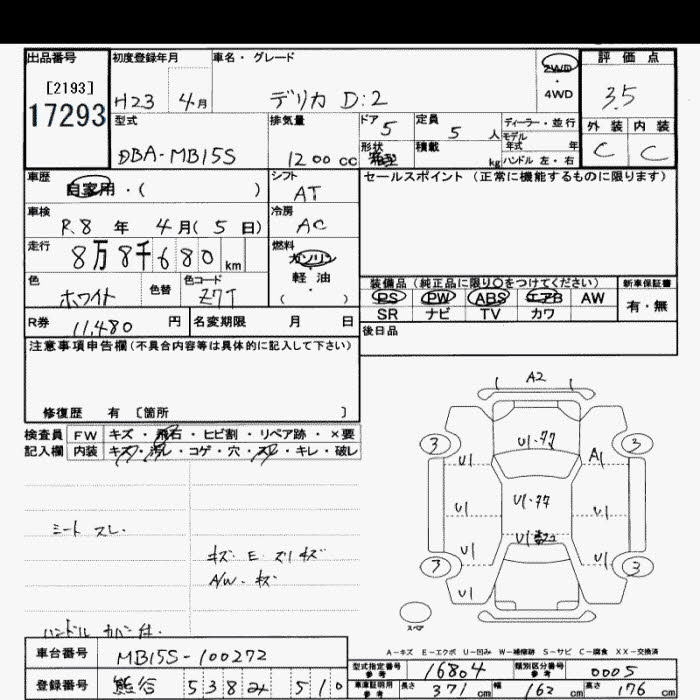 出品番号 初度登録年月 車名・グレード 評価点
[2193] 2WD
17293 H23 4月 デリカ D:2 ・4WD 3.5
型式 排気量 ドア 5 定員 5人 ディーラー・並行 外装 内装
DBA-MB15S 1200cc 形状 箱型 積載 kg モデル年式 年 C C
ハンドル 左・右
車歴 シフト セールスポイント (正常に機能するものに限ります)
自家用・( ) AT
車検 冷房
R.8年 4月(5日) AC
走行 燃料
8万8千680km ガソリン
軽油
色 色替 色コード ・
ホワイト Z7T ( )
装備品(純正品に限り○をつけてください) 新車保証書
PS PW ABS エアB AW 有・無
SR ナビ TV カワ
R券 11,480円 名変期限 月 日 後日品
注意事項申告欄(不具合内容等は具体的に記入して下さい)
修復歴 有 [箇所 ]
検査員 FW キズ・飛石・ヒビ割・リペア跡・×要
記入欄 内装 キズ・汚レ・コゲ・穴・スレ・キレ・破レ
シート スレ.
キズ E スリキズ
A/W キズ
ハンドル カバー付.
A2
3 3
U1 A1
U1 U1 U1
U1 U1
3
U1
スペア
A-キズ E-エクボ U-凹み W-補修跡 S-サビ C-腐食 XX-交換済
車台番号 MB15S-100272
型式指定番号 参考 16804 類別区分番号 参考 0005
登録番号 熊谷 538 510
車庫証明用 参考 長さ 371cm 幅 162cm 高さ 176cm